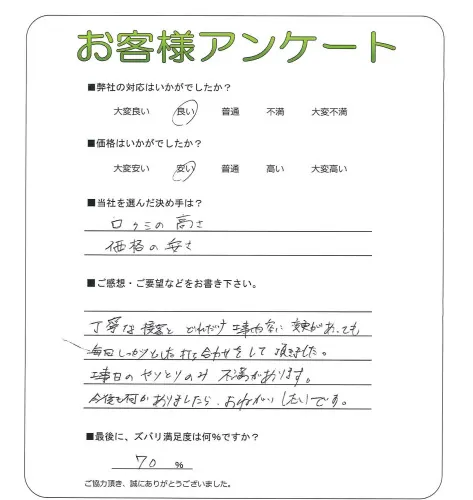 お客様アンケート
■弊社の対応はいかがでしたか？
大変良い 良い 普通 不満 大変不満
■価格はいかがでしたか？
大変安い 安い 普通 高い 大変高い
■当社を選んだ決め手は？
口クミの高さ
価格の安さ
■ご感想・ご要望などをお書き下さい。
丁寧な接客と どれだけ工事内容に変更があっても
毎日しっかりとした打ち合わせをして頂きました。
工事日のやりとりのみ 不満があります。
今後も何かありましたら、おねがいしたいです。
■最後に、ズバリ満足度は何%ですか？
70 %
ご協力頂き、誠にありがとうございました。